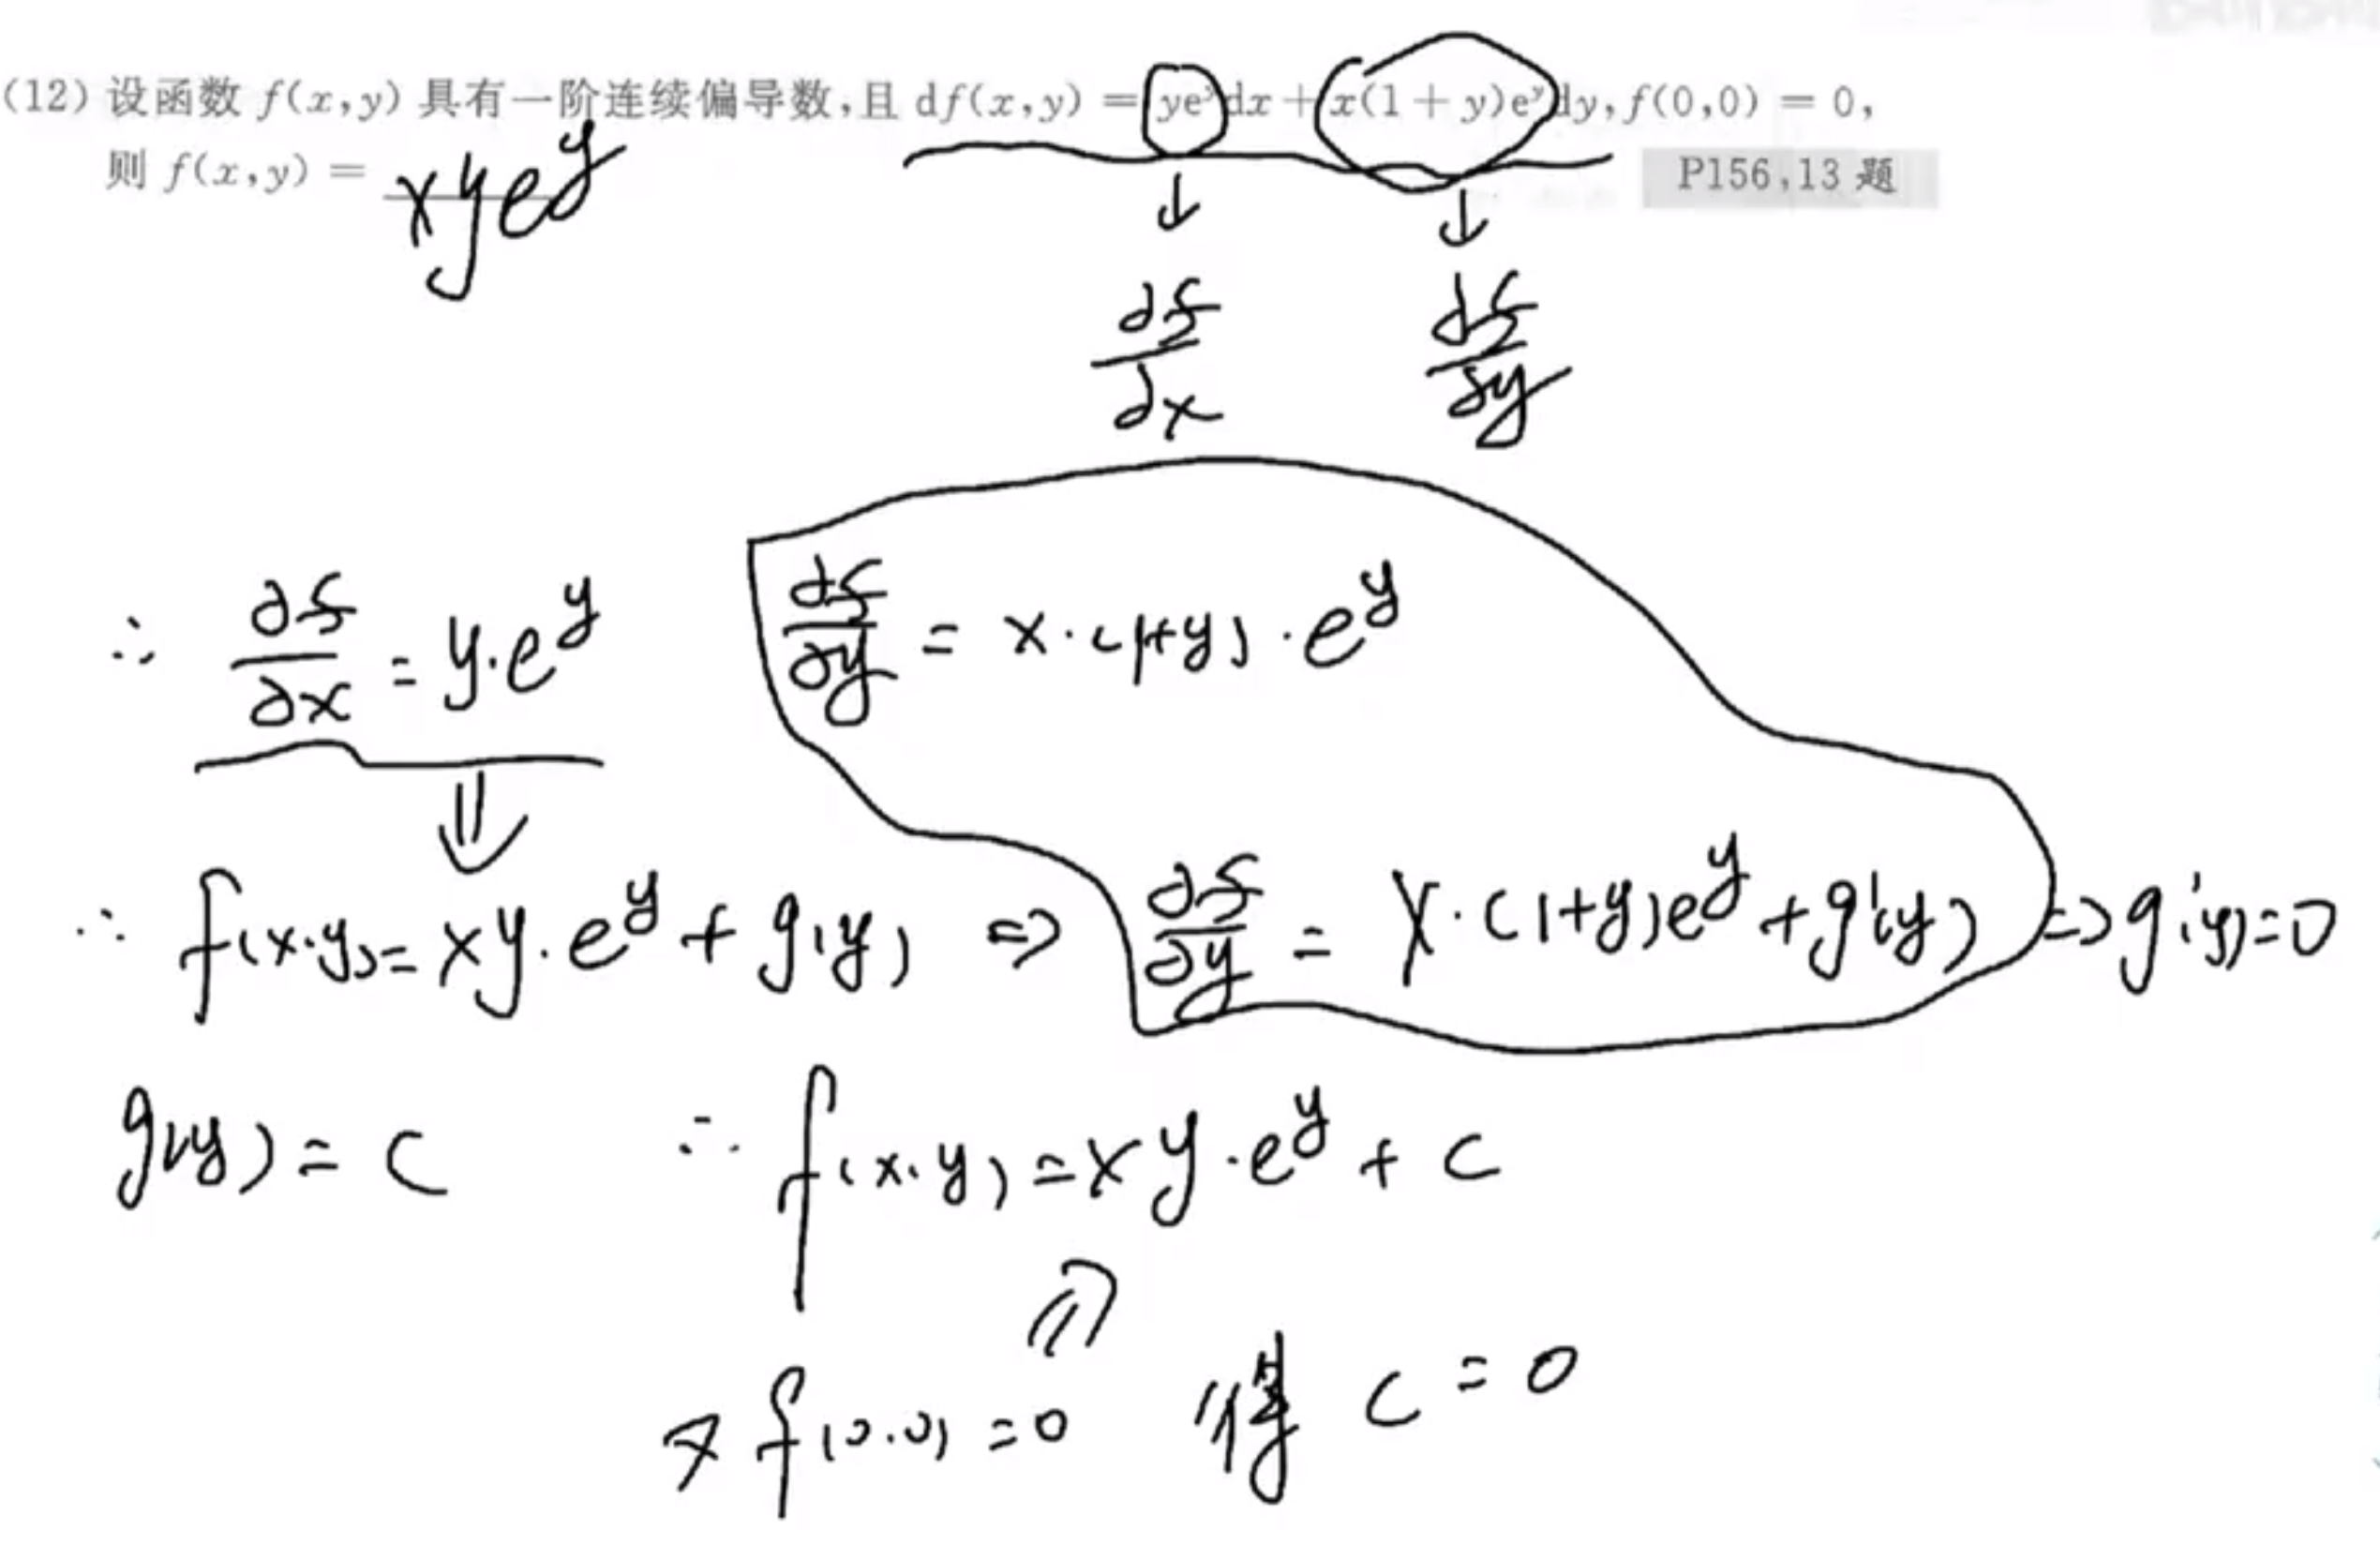 (12) 设函数 f(x,y) 具有一阶连续偏导数,且 df(x,y) = ye^y dx + x(1 + y)e^y dy, f(0,0) = 0,
则 f(x,y) = xye^y
P156,13 题
∂f/∂x ∂f/∂y
∴ ∂f/∂x = y·e^y ∂f/∂y = x·(1+y)·e^y
∴ f(x·y) = xy·e^y + g(y) ⇒ ∂f/∂y = x·(1+y)e^y + g'(y) ⇒ g'(y) = 0
g(y) = c ∴ f(x·y) = xy·e^y + c
又 f(0.0) = 0 得 c = 0